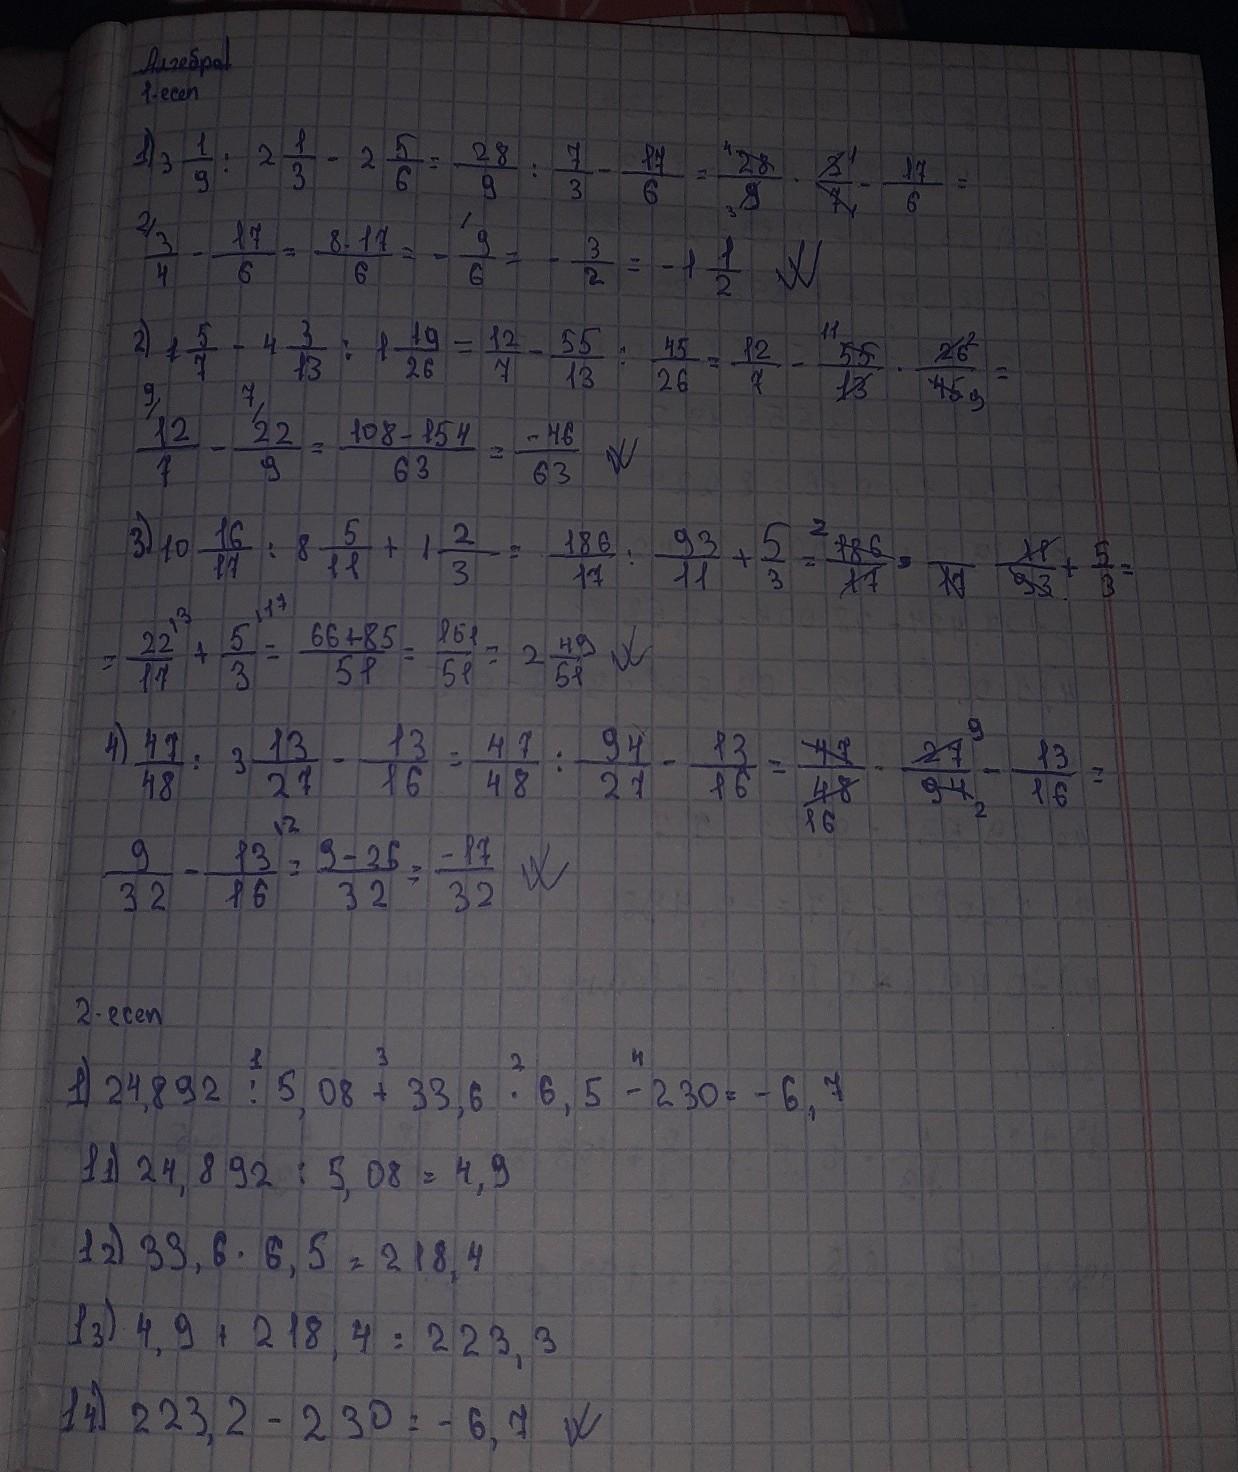 Алгебра
1-есеп
1) 3 1/9 : 2 1/3 - 2 5/6 = 28/9 : 7/3 - 17/6 = 28/9 · 3/7 - 17/6 =
3/4 - 17/6 = 8·17/6 = - 9/6 = - 3/2 = -1 1/2
2) 1 5/7 - 4 3/13 : 1 19/26 = 12/7 - 55/13 : 45/26 = 12/7 - 55/13 · 26/45 =
12/7 - 22/9 = 108-154/63 = -46/63
3) 10 16/17 : 8 5/11 + 1 2/3 = 186/17 : 93/11 + 5/3 = 186/17 11/93 + 5/3 =
= 22/17 + 5/3 = 66+85/51 = 151/51 = 2 49/51
4) 47/48 : 3 13/27 - 13/16 = 47/48 : 94/27 - 13/16 = 47/48 · 27/94 - 13/16 =
9/32 - 13/16 = 9-26/32 = -17/32
2-есеп
1) 24,892 : 5,08 + 33,6 · 6,5 - 230 = -6,7
11) 24,892 : 5,08 = 4,9
12) 33,6 · 6,5 = 218,4
13) 4,9 + 218,4 = 223,3
14) 223,2 - 230 = -6,7